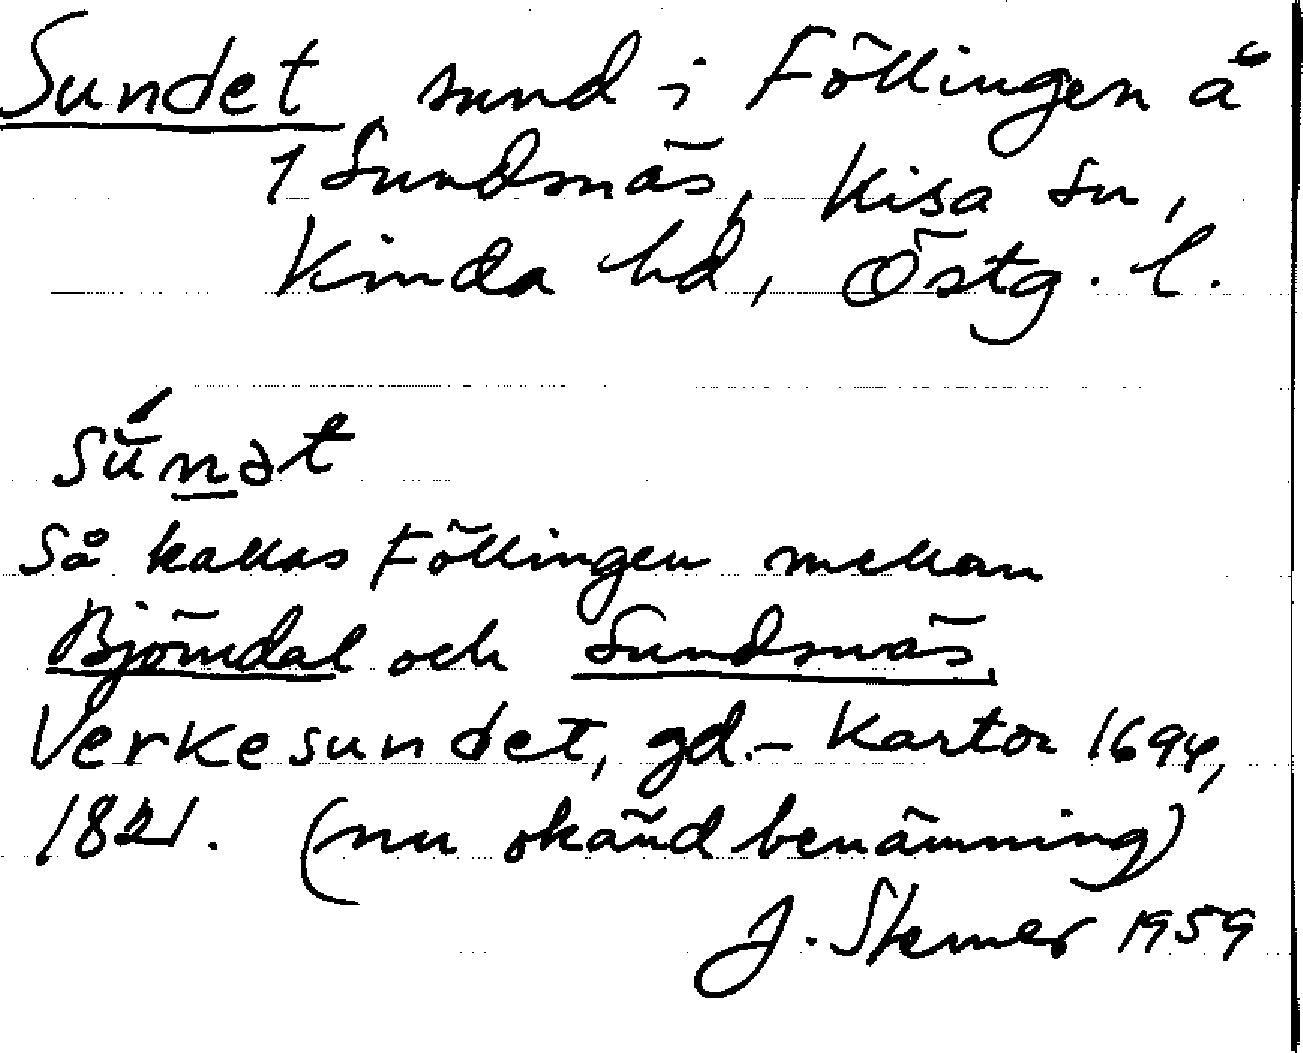 Sundet, sund i Föllingen å
1 Sundsnäs, Kisa sn,
Kinda hd, Östg. l.
Sunət
Så kallas Föllingen mellan
Björndal och Sundsnäs.
Verkesundet, gd. - Kartor 1694,
1821. (nu okänd benämning)
J. Sterner 1959